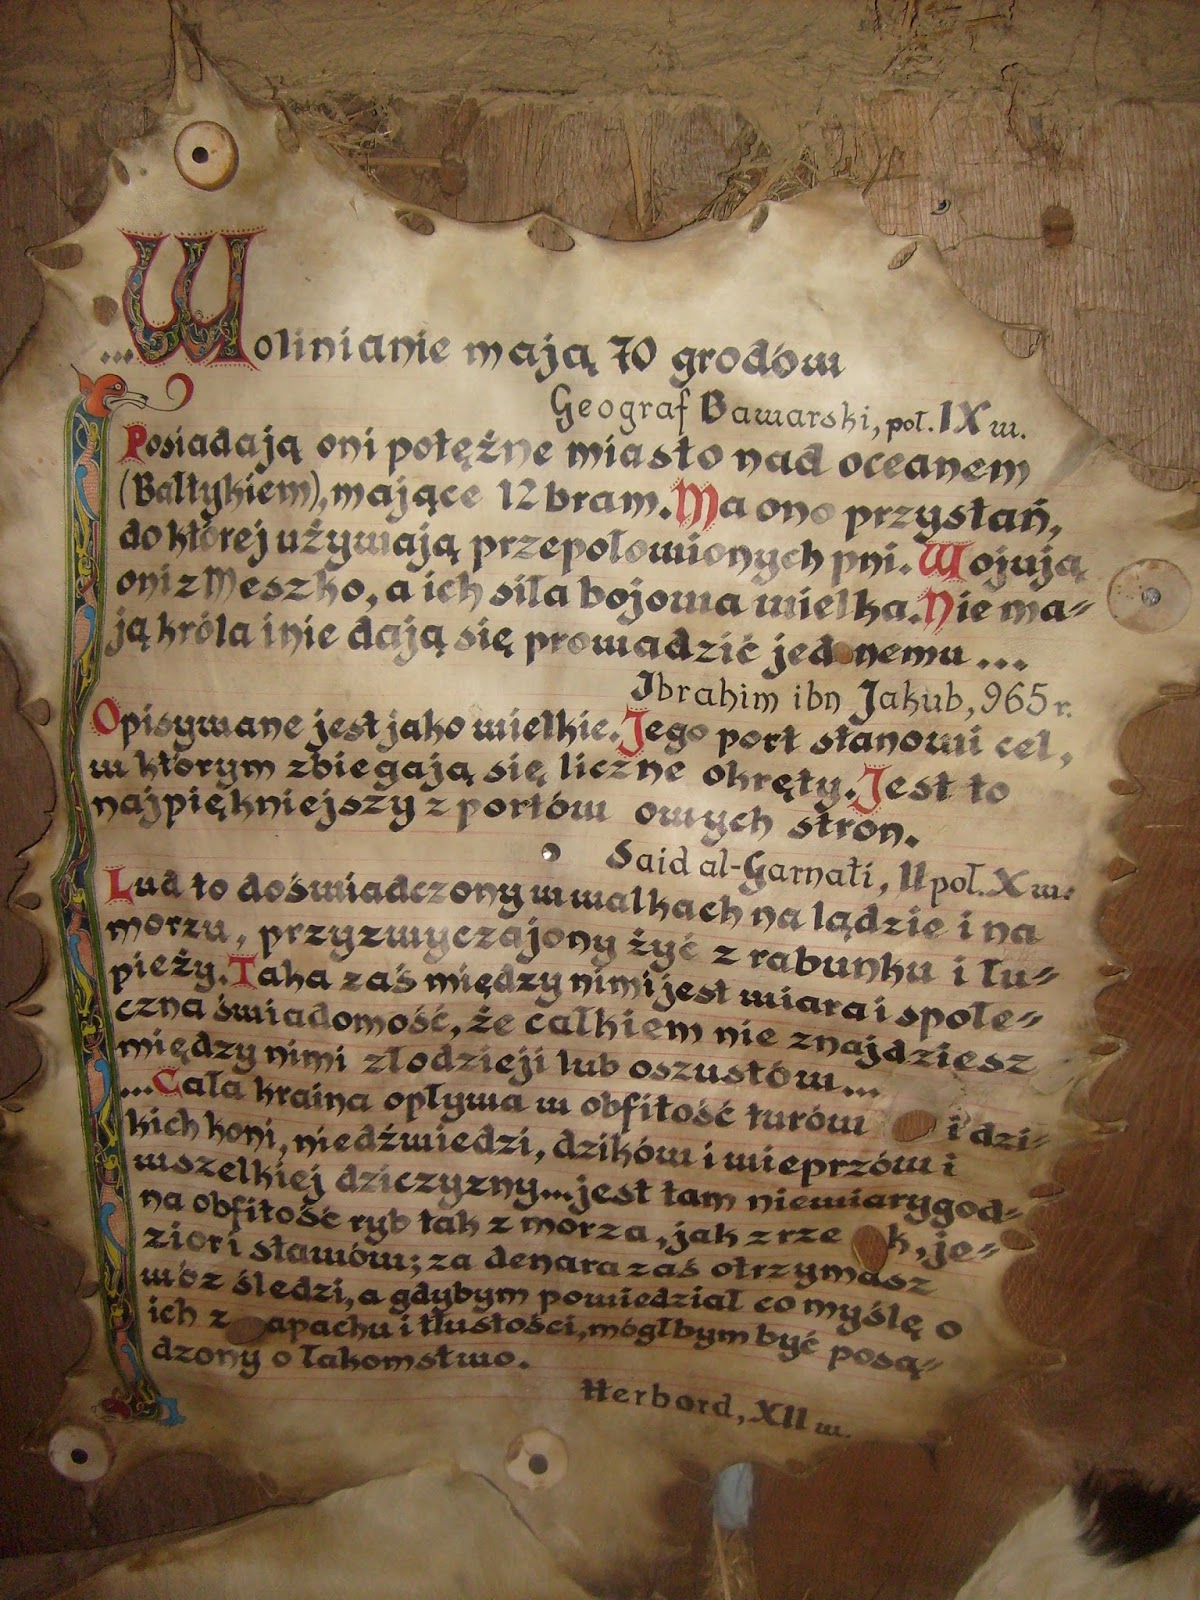 ...Wolinianie mają 70 grodów
Geograf Bawarski, poł. IX w.
Posiadają oni potężne miasto nad oceanem
(Bałtykiem), mające 12 bram. Ma ono przystań,
do której używają przepołowionych pni. Wojują
oni z Meszko, a ich siła bojowa wielka. Nie ma-
ją króla i nie dają się prowadzić jednemu...
Ibrahim ibn Jakub, 965 r.
Opisywane jest jako wielkie. Jego port stanowi cel,
w którym zbiegają się liczne okręty. Jest to
najpiękniejszy z portów owych stron.
Said al-Garnati, II poł. X w.
Lud to doświadczony w walkach na lądzie i na
morzu, przyzwyczajony żyć z rabunku i łu-
pieży. Taka zaś między nimi jest wiara i społe-
czna świadomość, że całkiem nie znajdziesz
między nimi złodzieji lub oszustów...
...Cała kraina opływa w obfitość turów i dzi-
kich koni, niedźwiedzi, dzików i wieprzów i
wszelkiej dziczyzny... jest tam niewiarygod-
na obfitość ryb tak z morza, jak z rzek, je-
zior i stawów; za denara zaś otrzymasz
wóz śledzi, a gdybym powiedział co myślę o
ich zapachu i tłustości, mógłbym być posą-
dzony o łakomstwo.
Herbord, XII w.